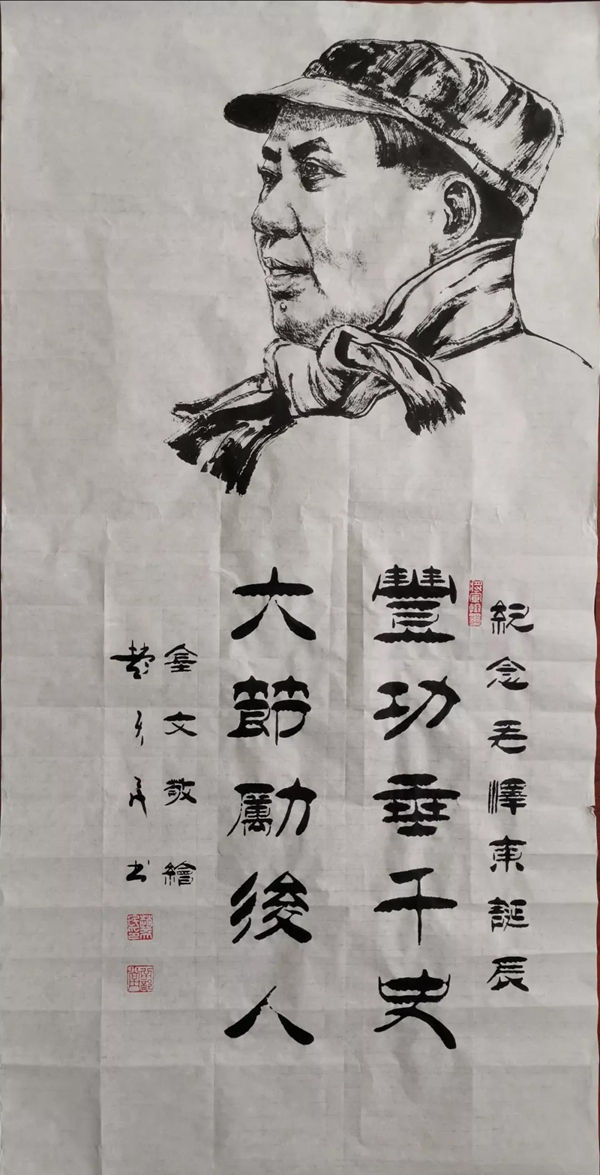 紀念毛澤東誕辰
豐功垂千史
大節勵後人
金文敬繪
民书